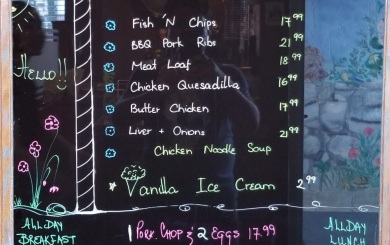 Hello!!
Fish 'N Chips 17.99
BBQ Pork Ribs 21.99
Meat Loaf 18.99
Chicken Quesadilla 16.99
Butter Chicken 17.99
Liver + Onions 21.99
Chicken Noodle Soup
Vanilla Ice Cream 2.99
ALL DAY
BREAKFAST
1 PORK CHOP & 2 EGGS 17.99
ALL DAY
LUNCH